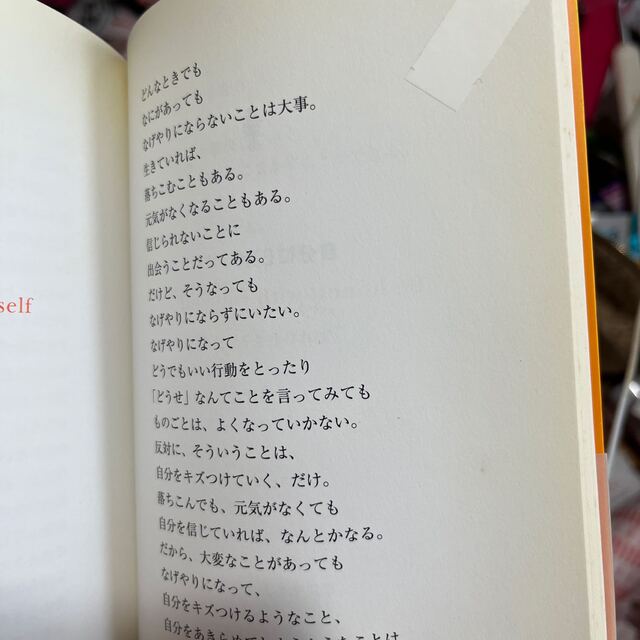 self
どんなときでも
なにがあっても
なげやりにならないことは大事。
生きていれば、
落ちこむこともある。
元気がなくなることもある。
信じられないことに
出会うことだってある。
だけど、そうなっても
なげやりにならずにいたい。
なげやりになって
どうでもいい行動をとったり
「どうせ」なんてことを言ってみても
ものごとは、よくなっていかない。
反対に、そういうことは、
自分をキズつけていく、だけ。
落ちこんでも、元気がなくても
自分を信じていれば、なんとかなる。
だから、大変なことがあっても
なげやりになって、
自分をキズつけるようなこと、
自分をあきらめてしまうようなことは